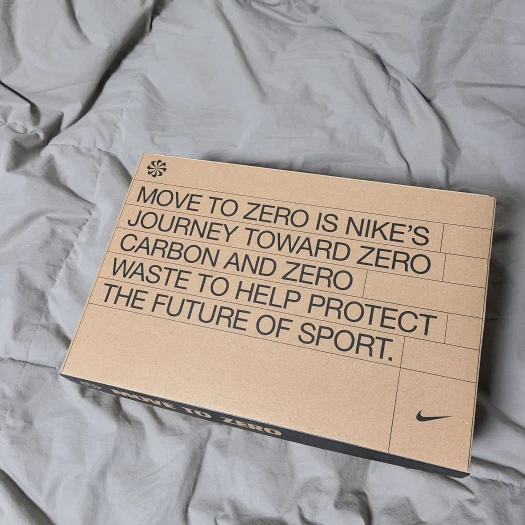 MOVE TO ZERO IS NIKE'S
JOURNEY TOWARD ZERO
CARBON AND ZERO
WASTE TO HELP PROTECT
THE FUTURE OF SPORT.
MOVE TO ZERO